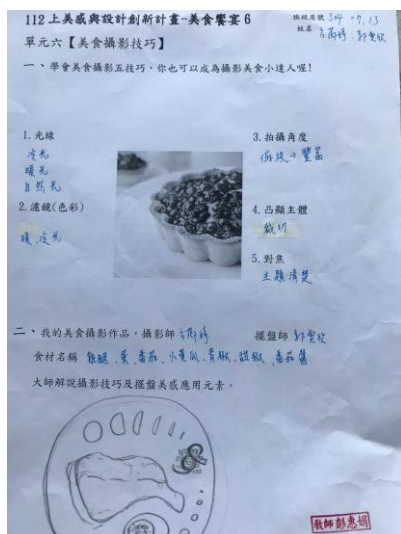 112上美感與設計創新計畫-美食饗宴6
班級座號 304 07.13
姓名
單元六【美食攝影技巧】
一、學會美食攝影五技巧,你也可以成為攝影美食小達人喔!
1.光線
逆光
順光
自然光
2.濾鏡(色彩)
暖、
3.拍攝角度
俯視→豐富
4.凸顯主體
裁切
5.對焦
主題清楚
二、我的美食攝影作品,攝影師
擺盤師
食材名稱 雞腿、蛋、番茄、小黃瓜、青椒、甜椒、番茄醬
大師解說攝影技巧及擺盤美感應用元素。
教師彭惠娟